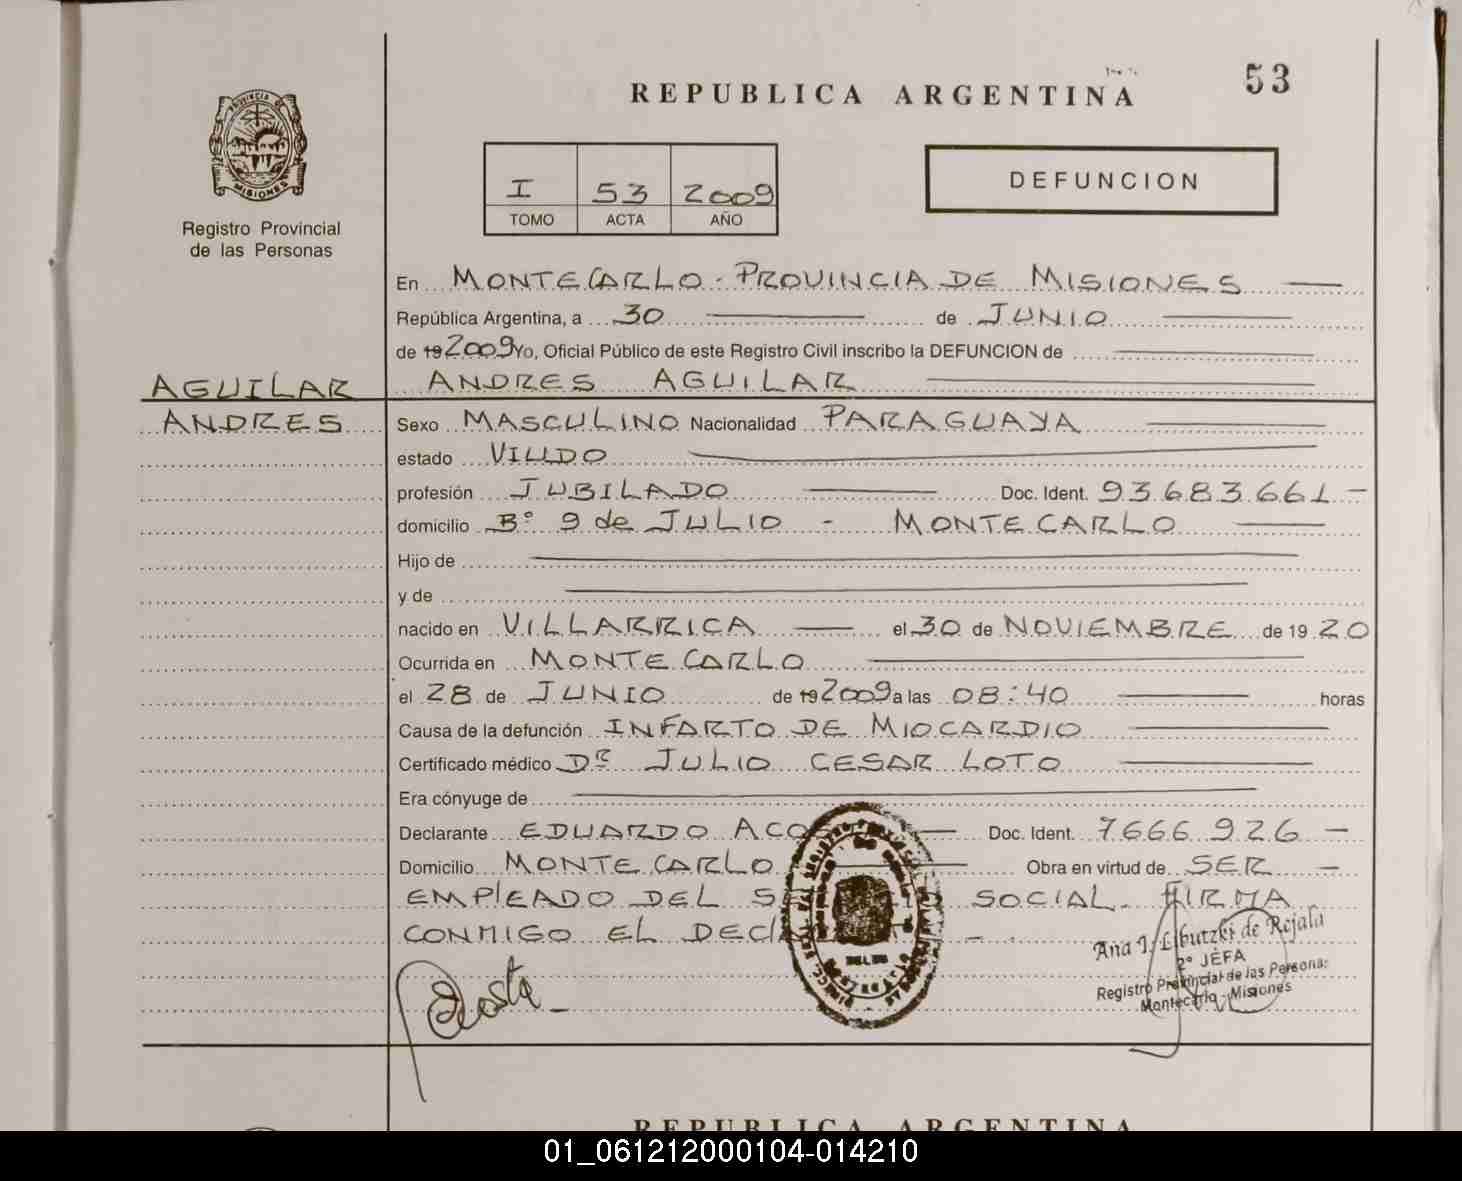 REPUBLICA ARGENTINA
53
PROVINCIA DE
MISIONES
Registro Provincial
de las Personas
I 53 2009
TOMO ACTA AÑO
DEFUNCION
En MONTECARLO - PROVINCIA DE MISIONES
República Argentina, a 30 de JUNIO
de 19 2009 Yo, Oficial Público de este Registro Civil inscribo la DEFUNCION de
ANDRES AGUILAR
AGUILAR
ANDRES
Sexo MASCULINO Nacionalidad PARAGUAYA
estado VIUDO
profesión JUBILADO Doc. Ident. 93.683.661 -
domicilio Bº 9 de JULIO - MONTECARLO
Hijo de
y de
nacido en VILLARRICA el 30 de NOVIEMBRE de 19 20
Ocurrida en MONTECARLO
el 28 de JUNIO de 19 2009 a las 08:40 horas
Causa de la defunción INFARTO DE MIOCARDIO
Certificado médico Dr JULIO CESAR LOTO
Era cónyuge de
Declarante EDUARDO Doc. Ident. 7666.926 -
Domicilio MONTECARLO Obra en virtud de SER -
EMPLEADO DEL SOCIAL - FIRMA
CONMIGO EL
Acosta
Ana J. Libutzki de Rejala
2º JEFA
Registro Provincial de las Personas
Montecarlo - Misiones
REPUBLICA ARGENTINA
01_061212000104-014210